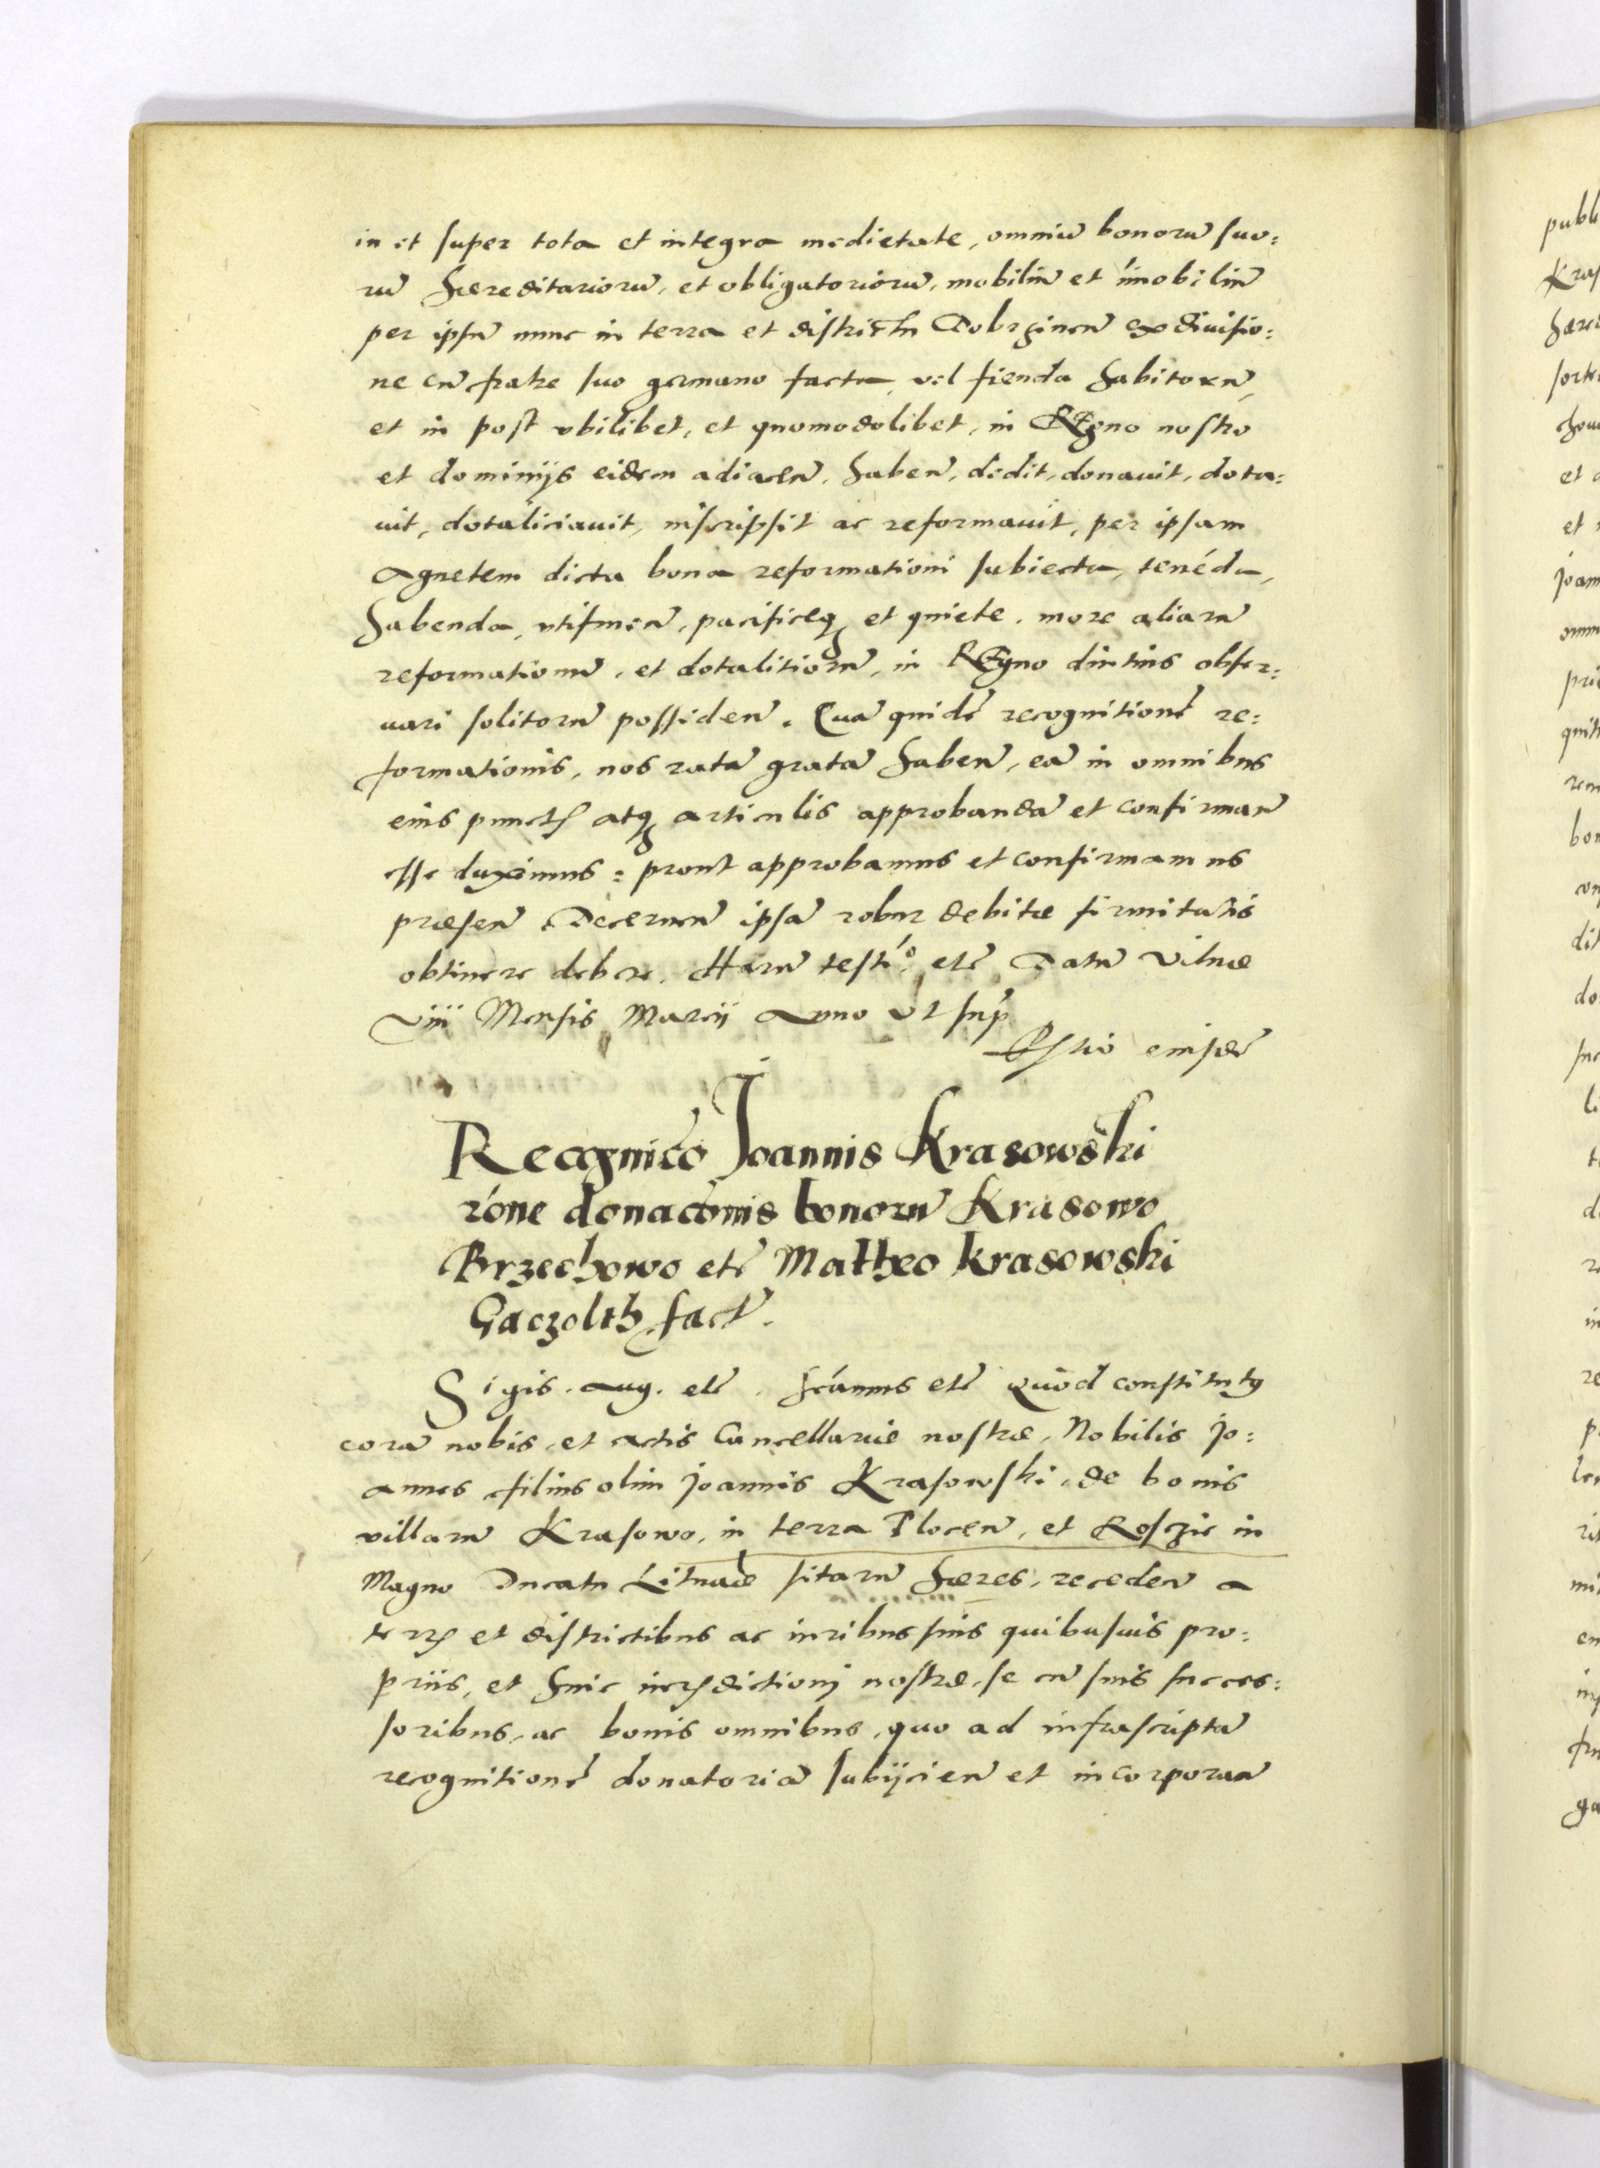 in et super tota et integra medietate, omniũ bonorũ suo:
rũ hæreditariorũ, et obligatoriorũ, mobiliũ et im̃obiliũ
per ipsũ nunc in terra et districtu Dobrzineñ ex divisio:
ne cũ fratre suo germano facta, vel fienda habitorũ,
et in post vbilibet, et quomodolibet, in Regno nostro
et dominijs eidem adiaceñ, habeñ, dedit, donauit, dota:
uit, dotaliciauit, inscripsit ac reformauit, per ipsam
Agnetem dicta bona reformationi subiecta, tenẽda,
habenda, vtifrueñ, pacificeq3 et quiete, more aliarũ
reformationũ, et dotalitiorũ, in Regno diutius obser:
uari solitorũ possideñ. Quã quidẽ recognitionẽ re:
formationis, nos ratã gratã habeñ, eã in omnibus
eius punctis atq3 articulis approbandã et confirmañ
esse duximus: prout approbamus et confirmamus
præseñ Decerneñ ipsã robur debitæ firmitatis
obtinere debere. Harũ testio. etc̃ Datũ Vilnæ
viij Mensis Marcij Anno vt sup̃
Rl̃tio eiusdẽ
Recognic̃o Joannis Krasowski
r̃one donac̃onis bonorũ Krasowo
Brzechowo etc̃ Mattheo Krasowski
Gaczolth fact̃.
Sigis. Aug. etc̃. Fc̃amus etc̃ Quod constitut9
corã nobis, et actis Cancellariæ nostræ, Nobilis Jo:
annes filius olim Joannis Krasowski, de bonis
villarũ Krasowo, in terra Ploceñ, et Rosczic in
Magno Ducatu Lituaniæ sitarũ hæres, recedeñ a
terris et districtibus ac iuribus suis quibusuis pro:
priis, et huic iurisdictioni nostræ, se cũ suis succes:
soribus, ac bonis omnibus, quo ad infrascriptã
recognitionẽ donatoriã subijcieñ et incorporañ